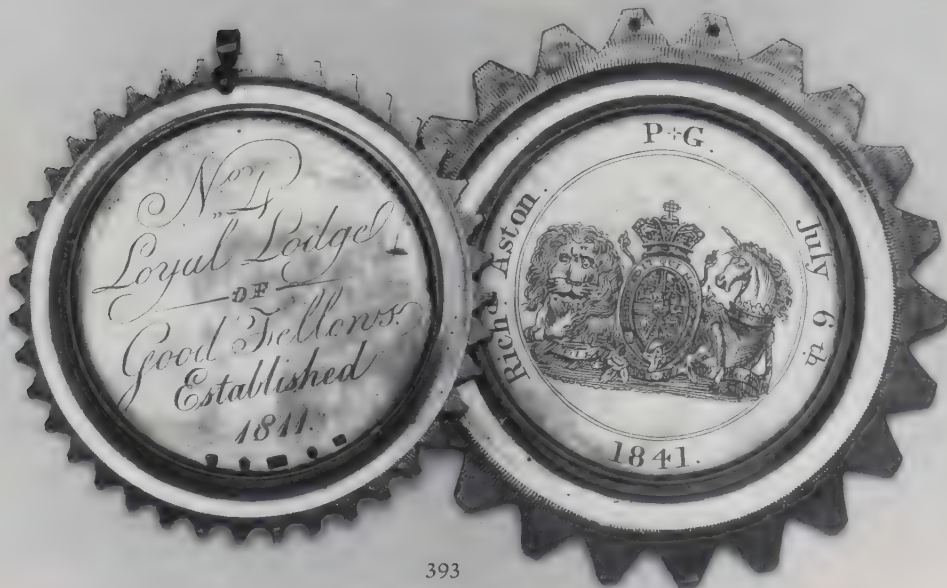 No. 4
Loyal Lodge
OF
Good Fellows.
Established
1811.
P+G.
Richd Aston.
July 6th
1841.
393